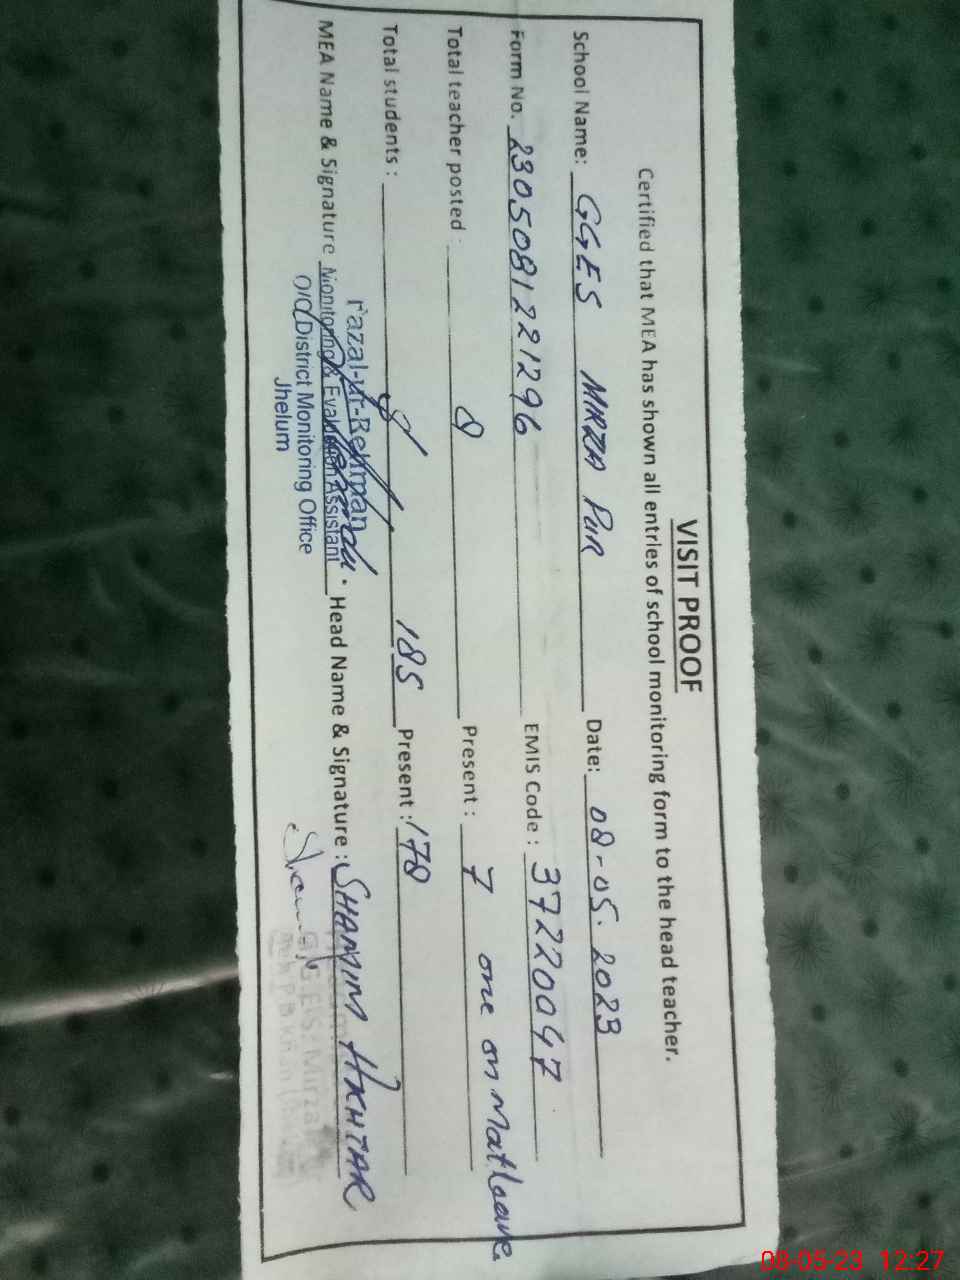 VISIT PROOF
Certified that MEA has shown all entries of school monitoring form to the head teacher.
School Name: GGES MIRZA PUR Date: 08-05.2023
Form No. 2305081221296 EMIS Code: 37220047
Total teacher posted: 8 Present: 7 one on Mat leave
Total students: 185 Present: 178
MEA Name & Signature Head Name & Signature: SHAMIM AKHTAR
Fazal-ur-Rehman
Monitoring & Evaluation Assistant
O/O District Monitoring Office
Jhelum
G.G.E.S. Mirza
08-05-23 12:27